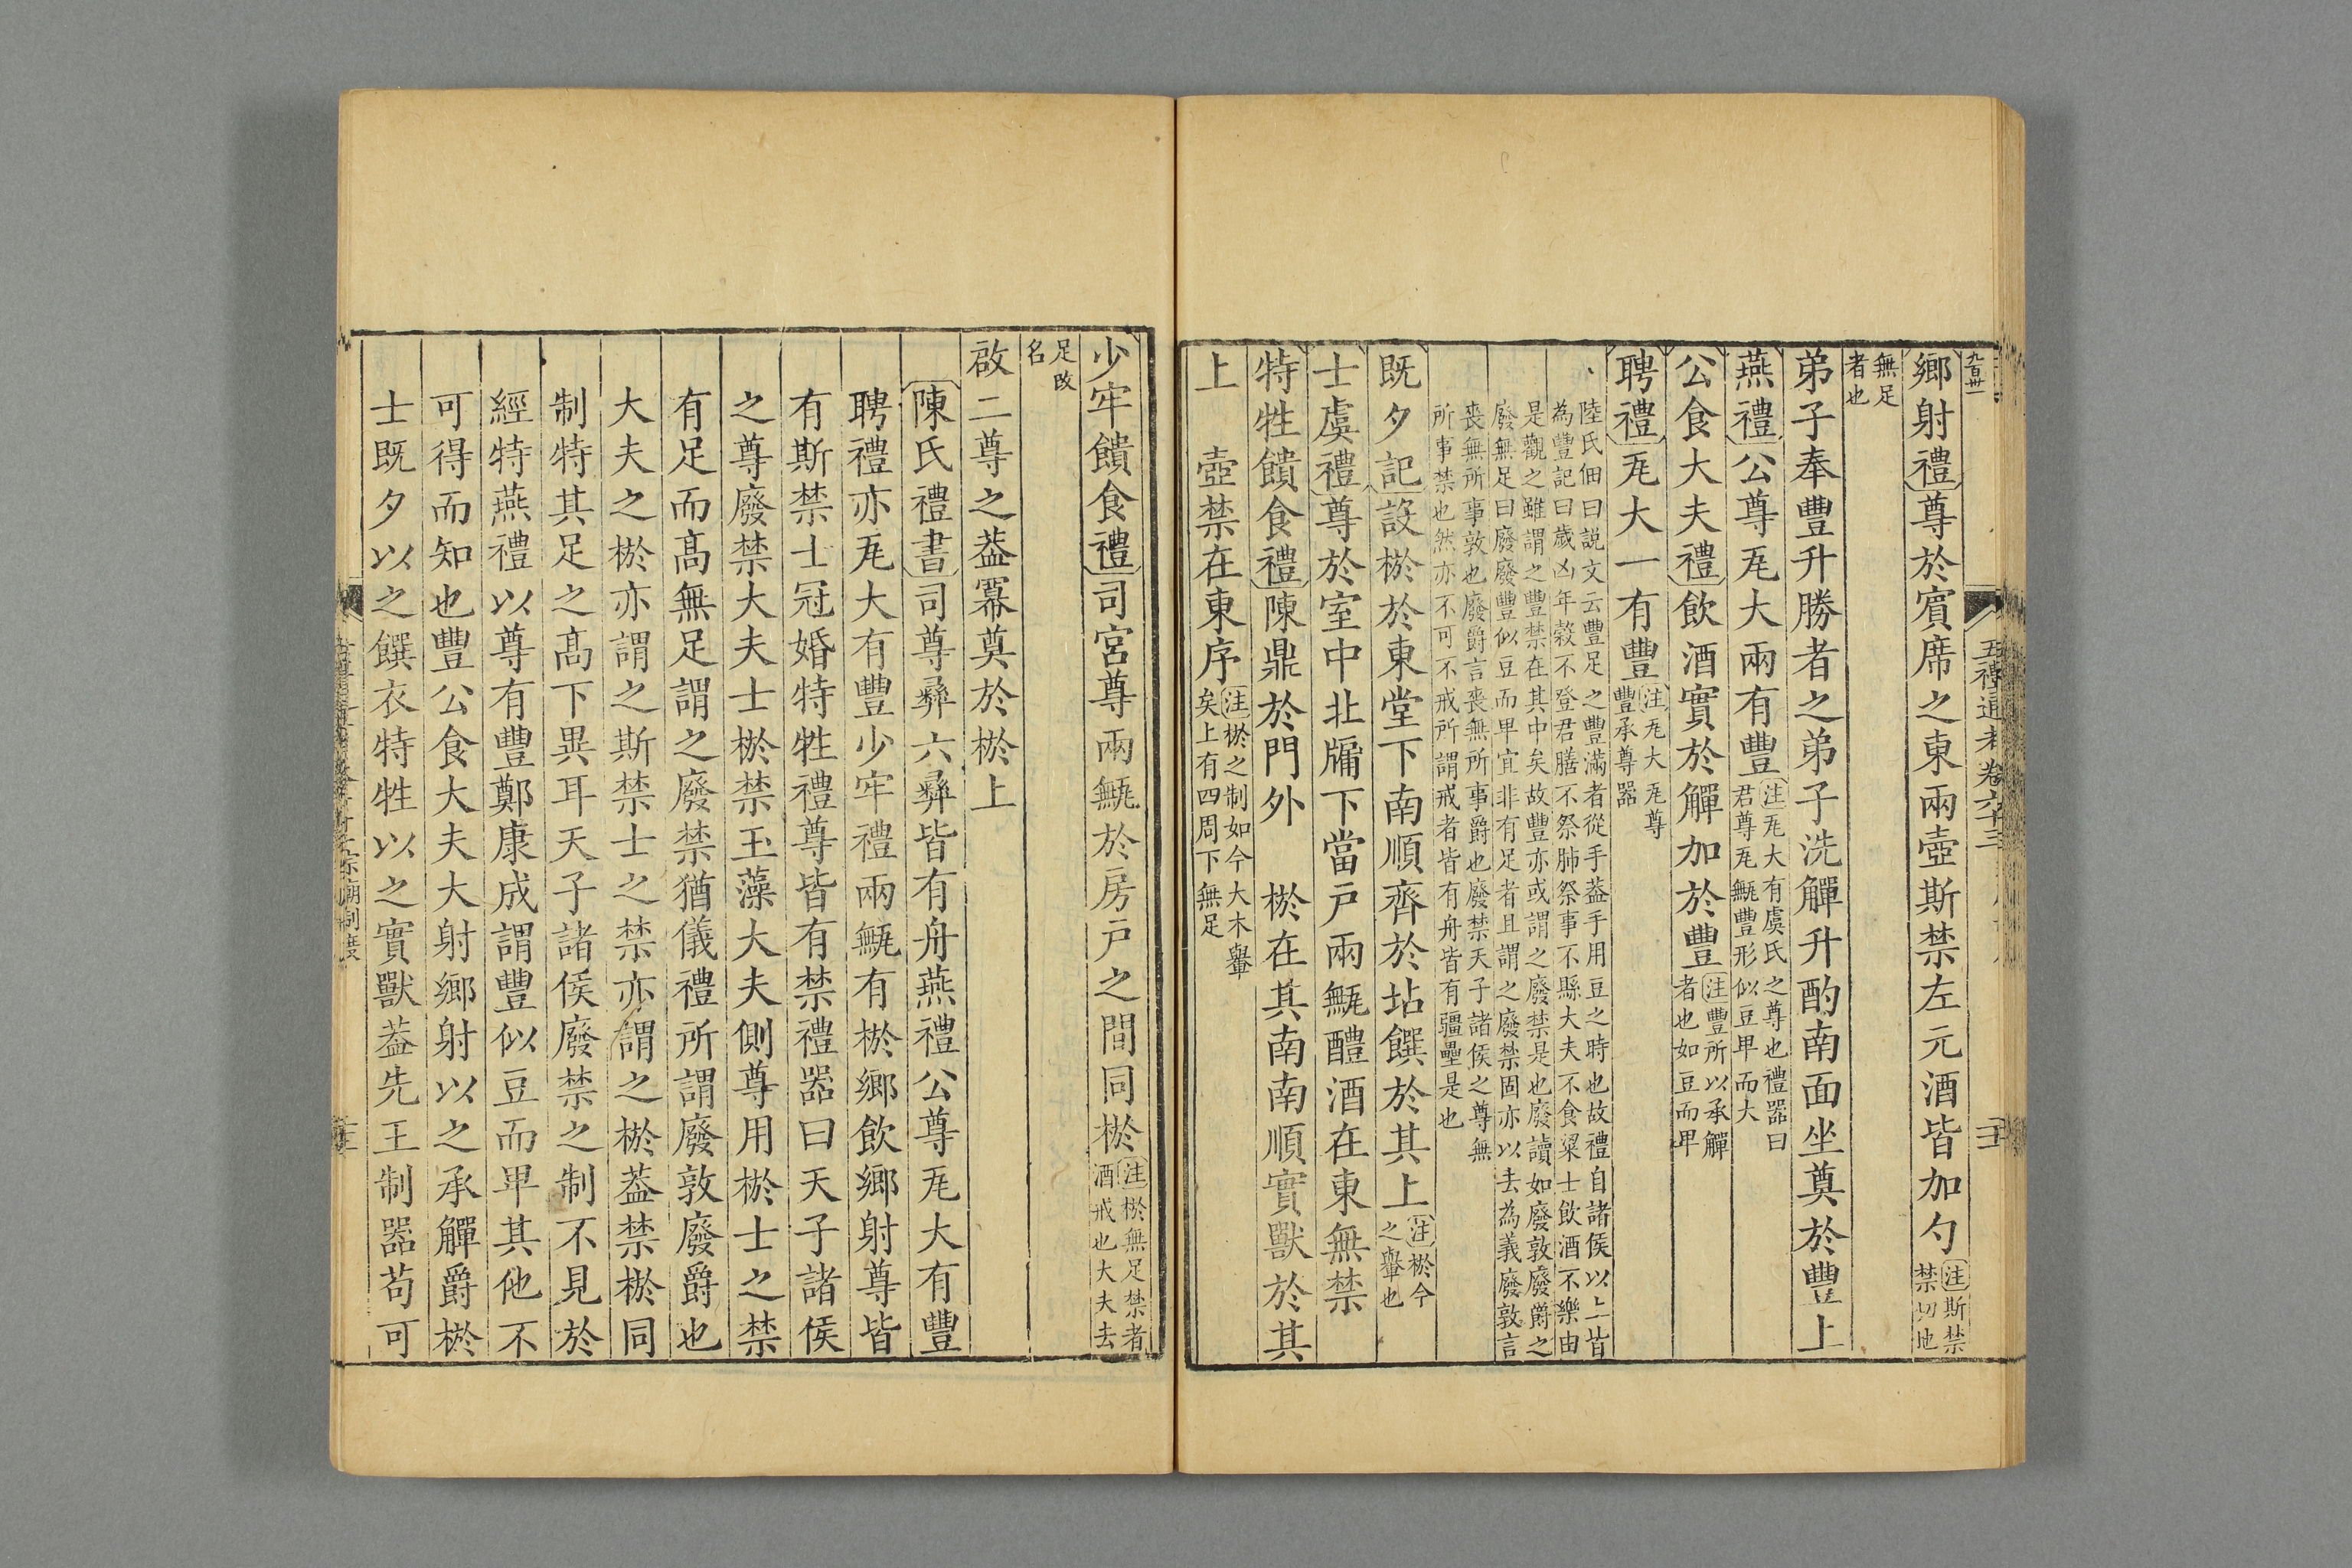 鄉射禮尊於賓席之東兩壺斯禁左元酒皆加勺注斯禁禁切地
無足者也
弟子奉豐升勝者之弟子洗觶升酌南面坐奠於豐上
燕禮公尊瓦大兩有豐注瓦大有虞氏之尊也禮器曰君尊瓦甒豐形似豆卑而大
公食大夫禮飲酒實於觶加於豐注豐所以承觶者也如豆而卑
聘禮瓦大一有豐注瓦大瓦尊豐承尊器
陸氏佃曰説文云豐足之豐滿者從手葢手用豆之時也故禮自諸侯以上皆
為豐記曰歲凶年穀不登君膳不祭肺祭事不縣大夫不食粱士飲酒不樂由
是觀之雖謂之豐禁在其中矣故豐亦或謂之廢禁是也廢讀如廢敦廢爵之
廢無足曰廢廢豐似豆而卑宜非有足者且謂之廢禁固亦以去為義廢敦言
喪無所事敦也廢爵言喪無所事爵也廢禁天子諸侯之尊無
所事禁也然亦不可不戒所謂戒者皆有舟皆有疆壘是也
既夕記設棜於東堂下南順齊於坫饌於其上注棜今之轝也
士虞禮尊於室中北牖下當戶兩甒醴酒在東無禁
特牲饋食禮陳鼎於門外 棜在其南南順實獸於其
上 壺禁在東序注棜之制如今大木轝矣上有四周下無足
少牢饋食禮司宮尊兩甒於房戶之間同棜注棜無足禁者酒戒也大夫去
足改名
啟二尊之葢冪奠於棜上
陳氏禮書司尊彝六彝皆有舟燕禮公尊瓦大有豐
聘禮亦瓦大有豐少牢禮兩甒有棜鄉飲鄉射尊皆
有斯禁士冠婚特牲禮尊皆有禁禮器曰天子諸侯
之尊廢禁大夫士棜禁玉藻大夫側尊用棜士之禁
有足而高無足謂之廢禁猶儀禮所謂廢敦廢爵也
大夫之棜亦謂之斯禁士之禁亦謂之棜葢禁棜同
制特其足之高下異耳天子諸侯廢禁之制不見於
經特燕禮以尊有豐鄭康成謂豐似豆而卑其他不
可得而知也豐公食大夫大射鄉射以之承觶爵棜
士既夕以之饌衣特牲以之實獸葢先王制器苟可